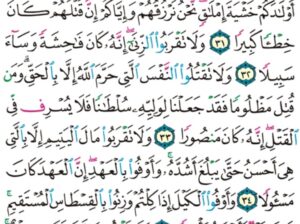 أَوْلَٰدَكُمْ خَشْيَةَ إِمْلَٰقٍ ۖ نَّحْنُ نَرْزُقُهُمْ وَإِيَّاكُمْ ۚ إِنَّ قَتْلَهُمْ كَانَ
خِطْـًٔا كَبِيرًا ٣١ وَلَا تَقْرَبُوا۟ ٱلزِّنَىٰٓ ۖ إِنَّهُۥ كَانَ فَٰحِشَةً وَسَآءَ
سَبِيلًا ٣٢ وَلَا تَقْتُلُوا۟ ٱلنَّفْسَ ٱلَّتِى حَرَّمَ ٱللَّهُ إِلَّا بِٱلْحَقِّ ۗ وَمَن
قُتِلَ مَظْلُومًا فَقَدْ جَعَلْنَا لِوَلِيِّهِۦ سُلْطَٰنًا فَلَا يُسْرِف فِّى
ٱلْقَتْلِ ۖ إِنَّهُۥ كَانَ مَنصُورًا ٣٣ وَلَا تَقْرَبُوا۟ مَالَ ٱلْيَتِيمِ إِلَّا بِٱلَّتِى
هِىَ أَحْسَنُ حَتَّىٰ يَبْلُغَ أَشُدَّهُۥ ۚ وَأَوْفُوا۟ بِٱلْعَهْدِ ۖ إِنَّ ٱلْعَهْدَ كَانَ
مَسْـُٔولًا ٣٤ وَأَوْفُوا۟ ٱلْكَيْلَ إِذَا كِلْتُمْ وَزِنُوا۟ بِٱلْقِسْطَاسِ ٱلْمُسْتَقِيمِ ۚ